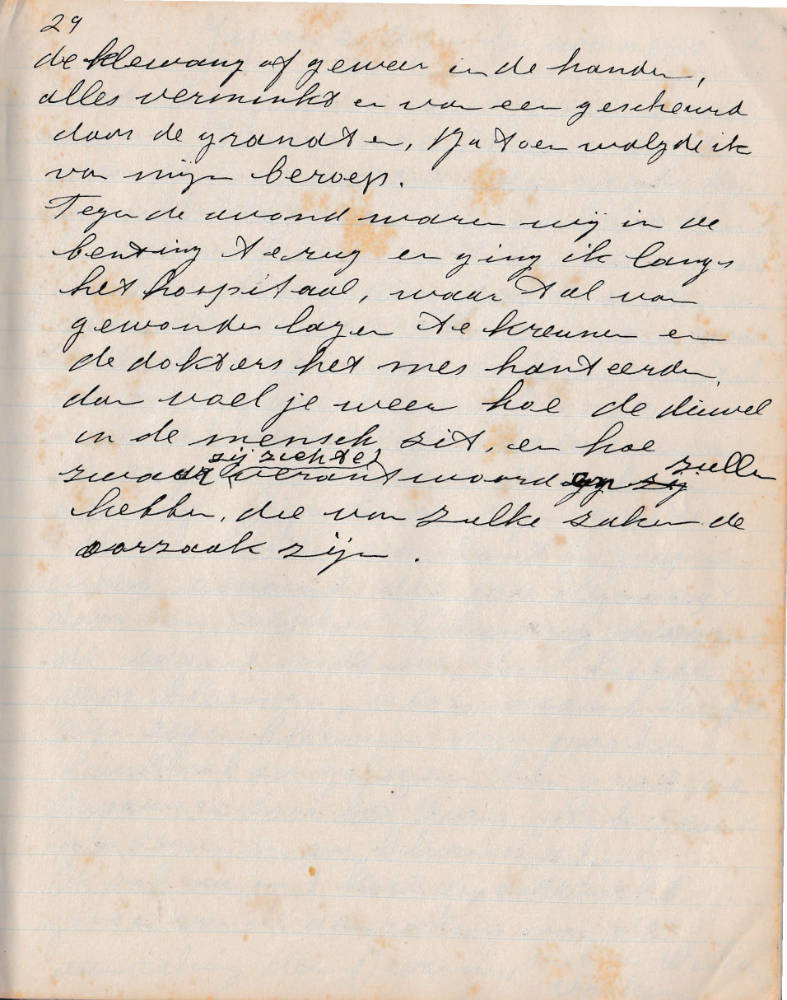 29
de klewang of geweer in de handen,
alles verminkt en van een gescheurd
door de granaten, Ja toen walgde ik
van mijn beroep.
Tegen de avond waren wij in de
benting terug en ging ik langs
het hospitaal, waar tal van
gewonden lagen te kreunen en
de dokters het mes hanteerden,
dan voel je weer hoe de duivel
in de mensch zit, en hoe
zwaar zij zichte verantwoorden zullen
hebben, die van zulke zaken de
oorzaak zijn.